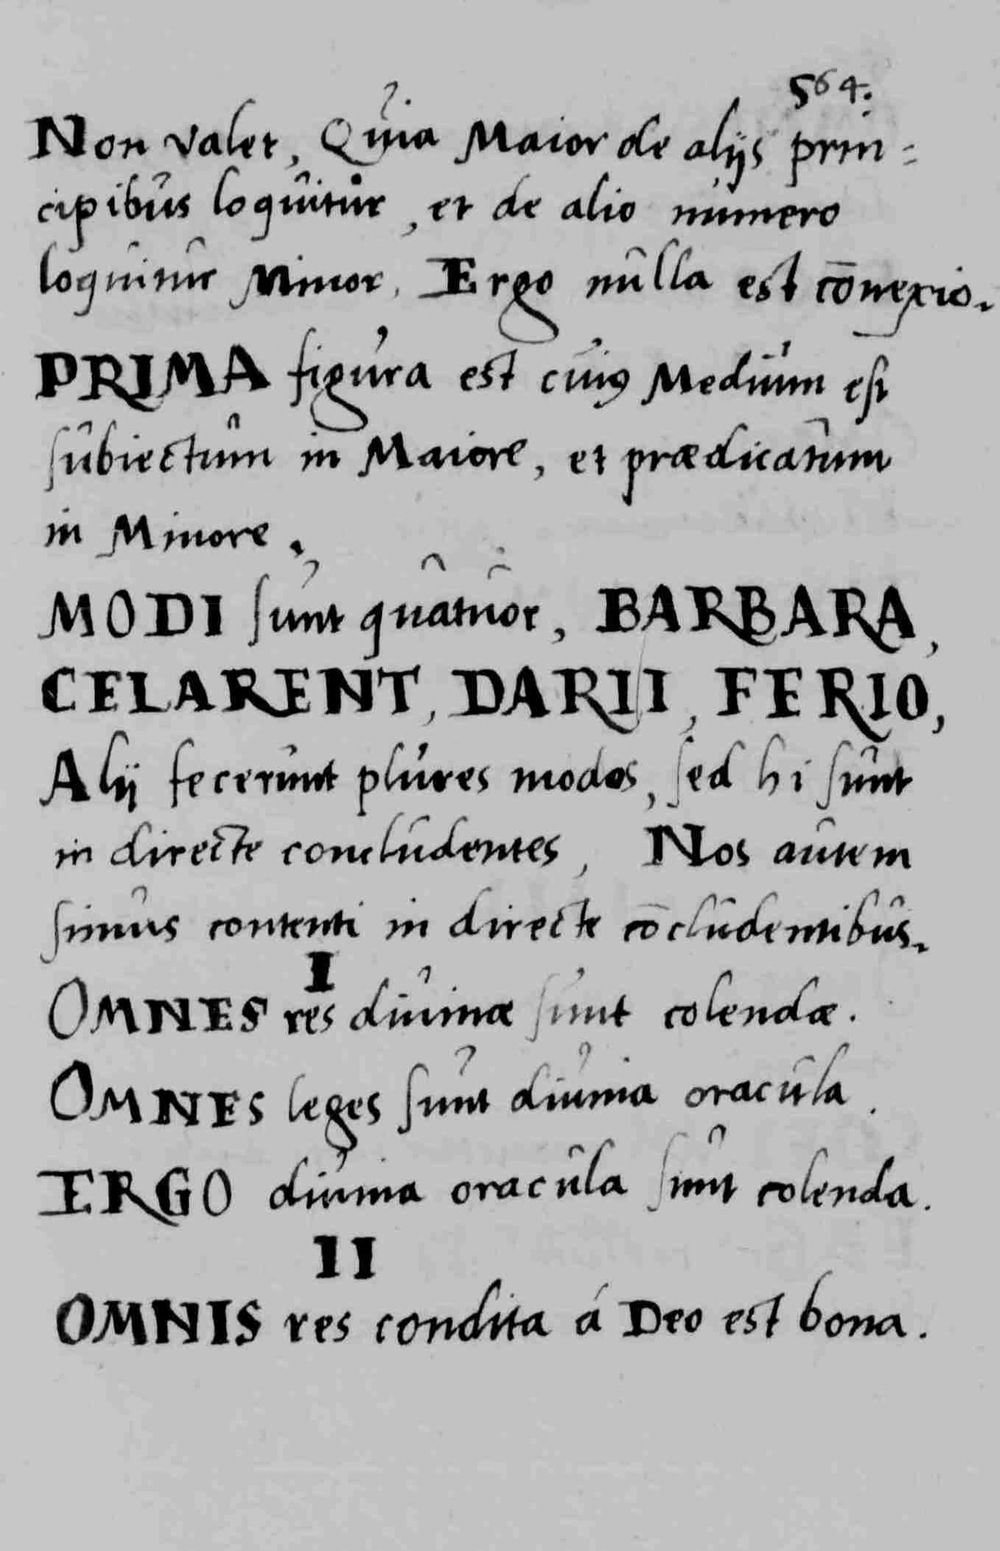 564.
Non valet, Quia Maior de alijs prin=
cipibus loquitur, et de alio numero
loquitur Minor, Ergo nulla est cōnexio.
PRIMA figura est cuiꝰ Medium est
subiectum in Maiore, et prædicatum
in Minore.
MODI sunt quatuor, BARBARA,
CELARENT, DARII, FERIO,
Alij fecerunt plures modos, sed hi sunt
in directe concludentes, Nos autem
simus contenti in directe cōcludentibus.
I
OMNES res diuinæ sunt colendæ.
OMNES leges sunt diuina oracula.
ERGO diuina oracula sunt colenda.
II
OMNIS res condita á Deo est bona.